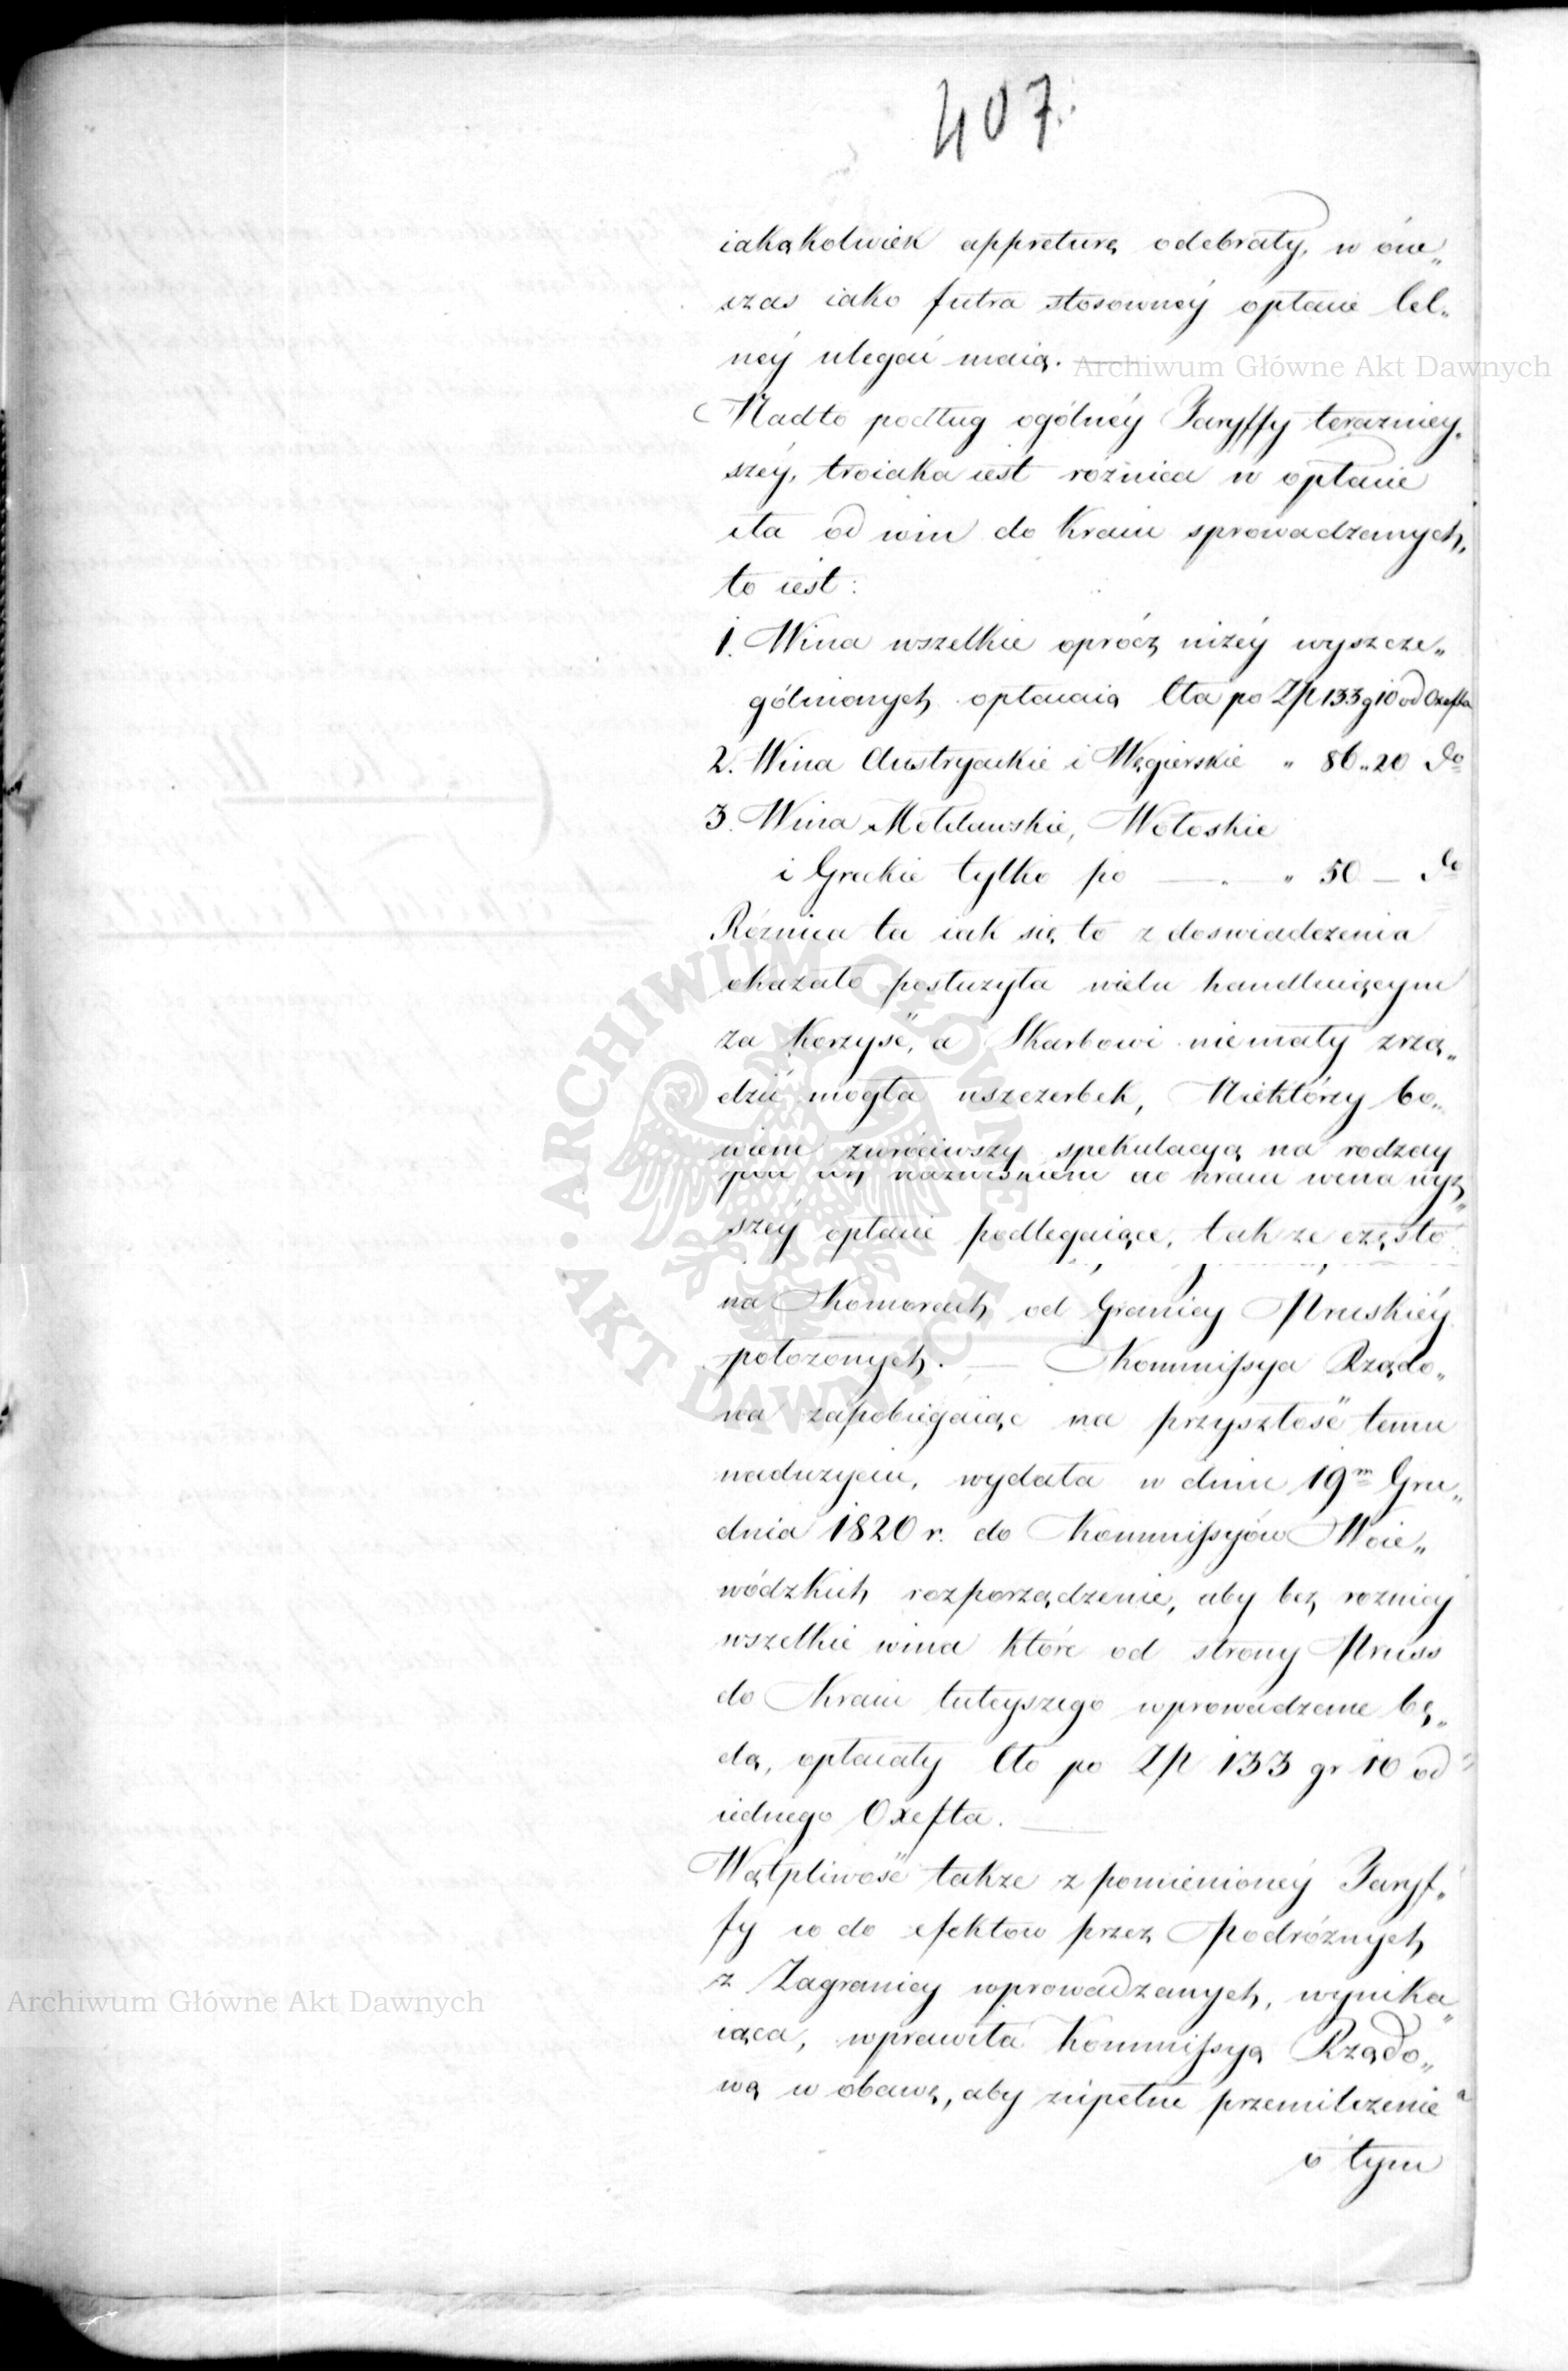 407.
iakąkolwiek appreturę odebrały, w ów„
czas iako futra stosownéy opłacie Cel„
néy ulegać maią. —
Archiwum Główne Akt Dawnych
Nadto podług ogólnéy Taryffy teraźniey„
széy, troiaka iest różnica w opłacie
cła od win do Kraiu sprowadzanych,
to iest:
1. Wina wszelkie oprócz niżéy wyszcze„
gólnionych opłacaią Cła po Zł 133 g 10 od Oxefta
2. Wina Austryackie i Węgierskie „ 86 „ 20 do
3. Wina Mołdawskie, Wołoskie
i Greckie tylko po — „ 50 — do
Różnica ta iak się to z doswiadczenia
okazało posłużyła wielu handluiącym
za korzyść, a Skarbowi niemały zrzą„
dzić mogła uszczerbek, Niektórzy bo„
wiem zwróciwszy spekulacyą na rodzay
pod nazwiskiem do kraiu wina wyż„
széy opłacie podlegaiące, tak że często
na Komorach od Granicy Pruskiéy
położonych. — Kommissya Rządo„
wa zapobiegaiąc na przyszłość temu
nadużyciu, wydała w dniu 19m Gru„
dnia 1820 r. do Kommissyów Woie„
wódzkich rozporządzenie, aby bez rożnicy
wszelkie wina które od strony Pruss
do Kraiu tuteyszego wprowadzane bę„
dą, opłacały Cło po Zł 133 gr 10 od
iednego Oxefta. —
Wątpliwość także z pomienionéy Taryf„
fy co do efektow przez Podróżnych
z Zagranicy wprowadzanych, wynika„
iąca, wprawiła Kommissyą Rządo„
wą w obawę, aby zupełne przemilczenie
o tym
ARCHIWUM GŁÓWNE AKT DAWNYCH
Archiwum Główne Akt Dawnych